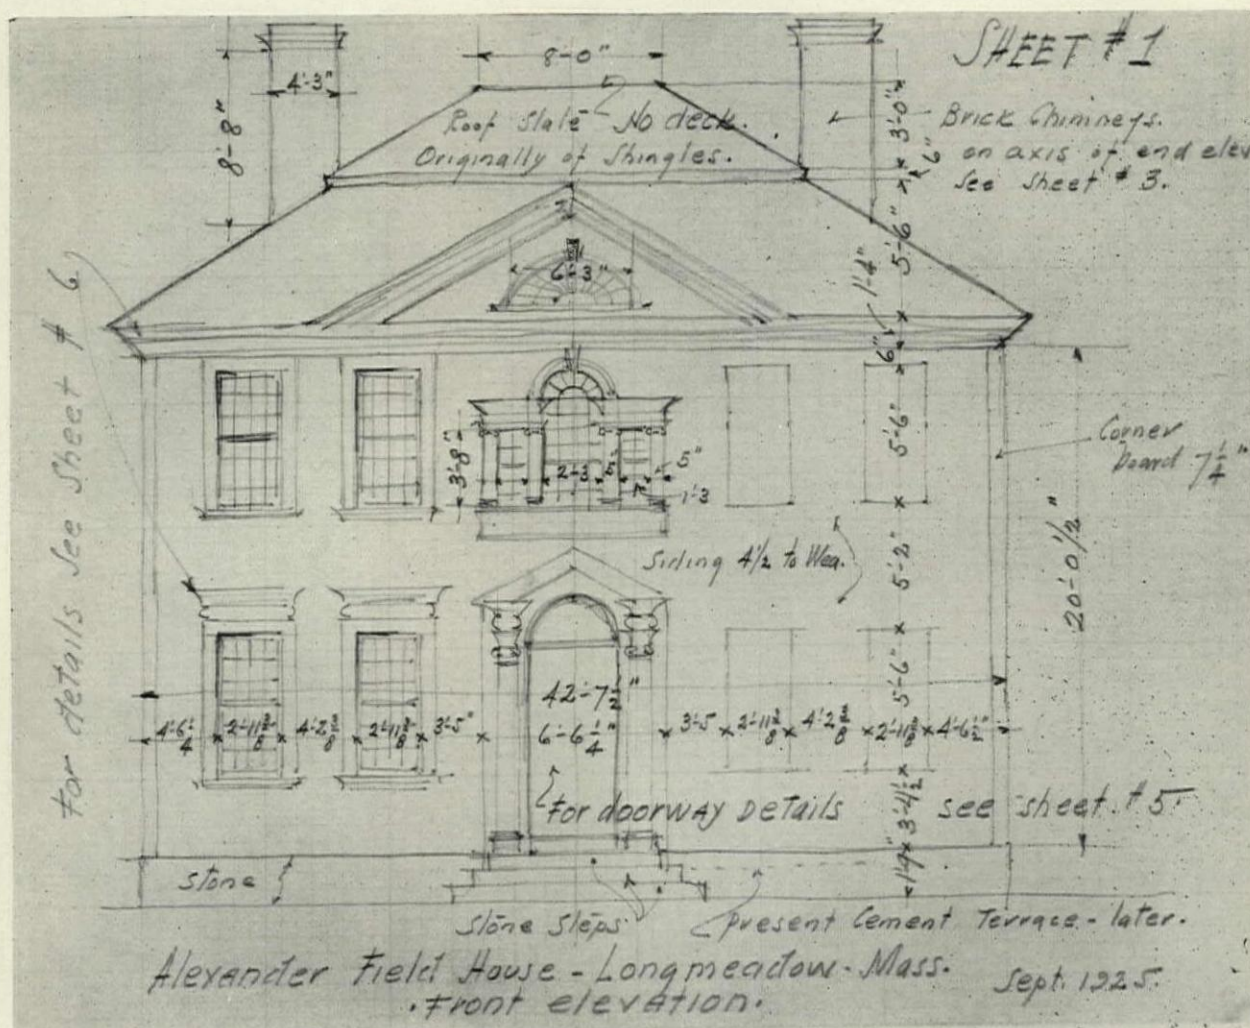 SHEET #1
8'-0"
4'-3"
8'-8"
Roof Slate - No deck.
Originally of Shingles.
3'-0"
6"
Brick Chimneys.
on axis of end elev
See Sheet #3.
5'-6"
1'-4"
6"
6'-3"
For details See Sheet # 6
3'-8"
5"
1'-3
5'-6"
Corner
Board 7 1/4"
Siding 4 1/2 to Wea.
5'-2"
20'-0 1/2"
5'-6"
42'-7 1/2"
4'-6 1/4 2'-11 3/8 4'-2 3/8 2'-11 3/8 3'-5" 6'-6 1/4" 3'-5 2'-11 3/8 4'-2 3/8 2'-11 3/8 4'-6 1/2"
3'-4 1/2
For doorway Details see sheet #5
19"
Stone
Stone Steps
Present Cement Terrace - later.
Alexander Field House - Longmeadow - Mass.
Sept. 1925.
. Front elevation.